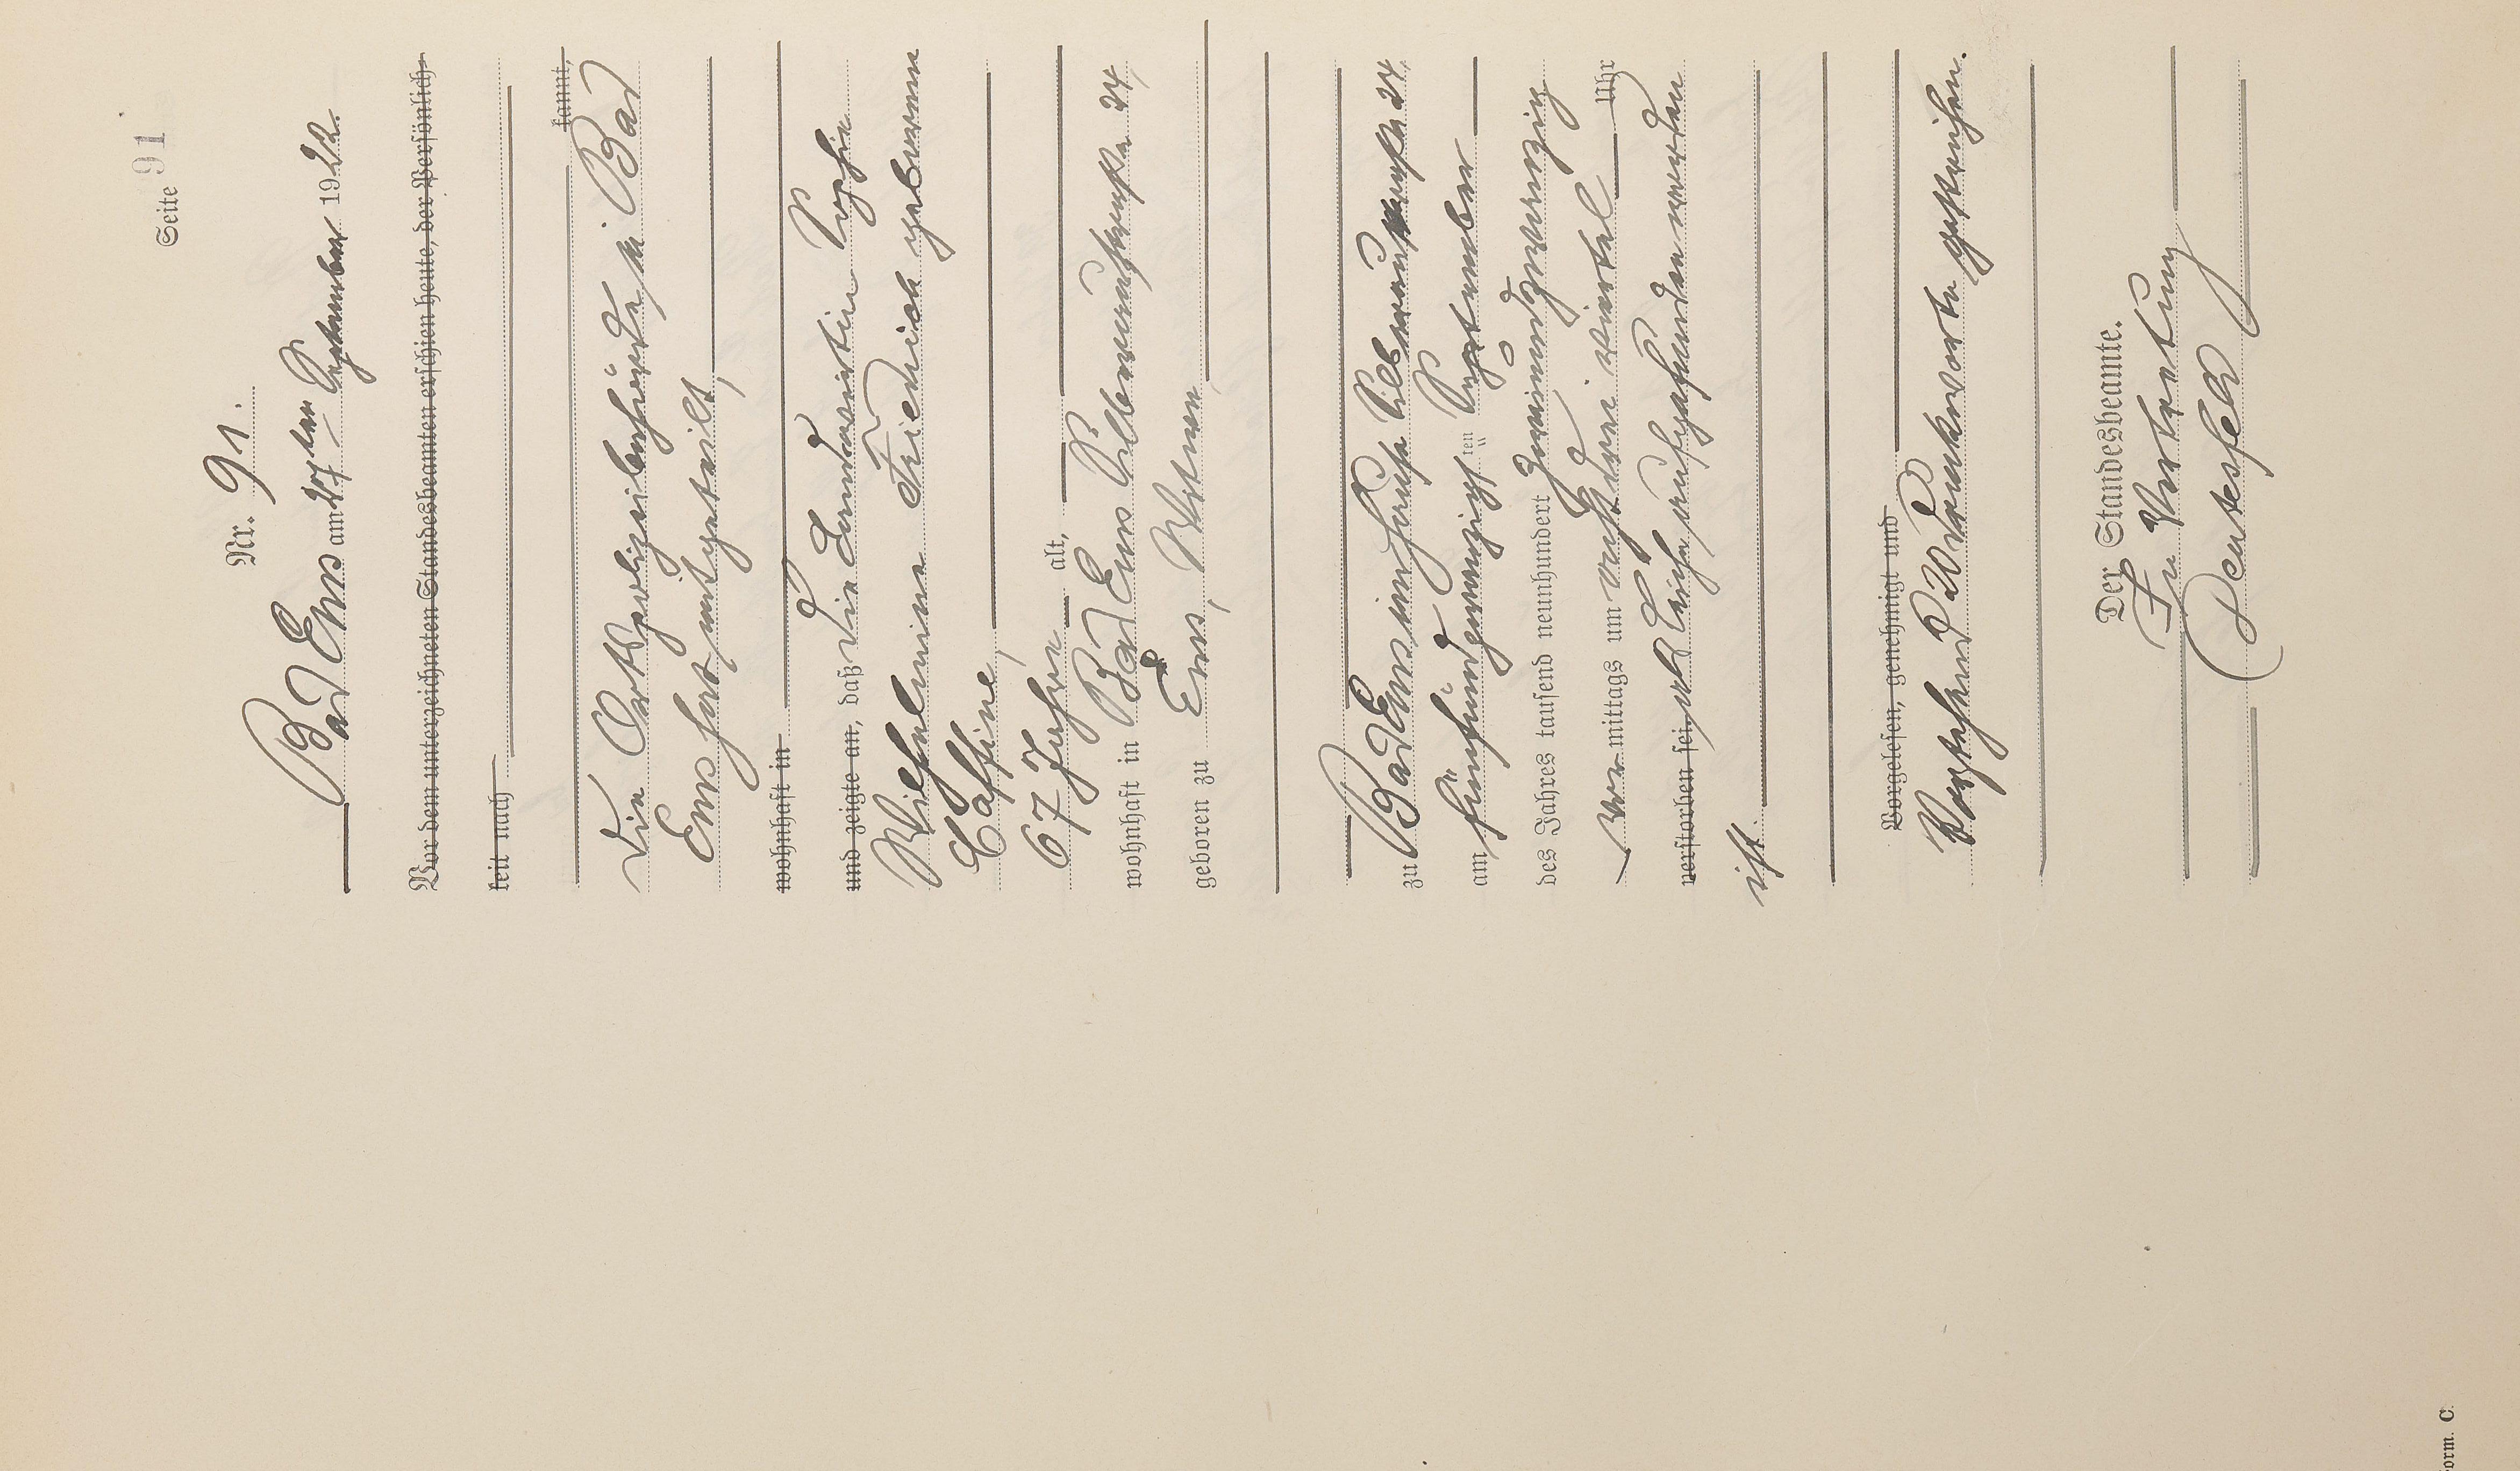 Seite 91
Nr. 91.
Bad Ems am 27ten September 1922.
Vor dem unterzeichneten Standesbeamten erschien heute, der Persönlich-
keit nach
kannt,
Die Ortspolizeibehörde zu Bad
Ems hat mitgeteilt,
wohnhaft in
und zeigte an, daß die Landwirtin Sophie
Wilhelmine Friedrich geborene
Caffine,
67 Jahre alt,
wohnhaft in Bad Ems Silberaustraße 24,
geboren zu Ems, Witwe,
zu Bad Ems im Hause Silberaustraße 24
am fünfundzwanzigsten September
des Jahres tausend neunhundert zweiundzwanzig
vormittags um acht drei viertel Uhr
verstorben sei. als Leiche aufgefunden worden
ist.
Vorgelesen, genehmigt und
Vorstehend Druckworte gestrichen.
Der Standesbeamte.
In Vertretung
Form. C.